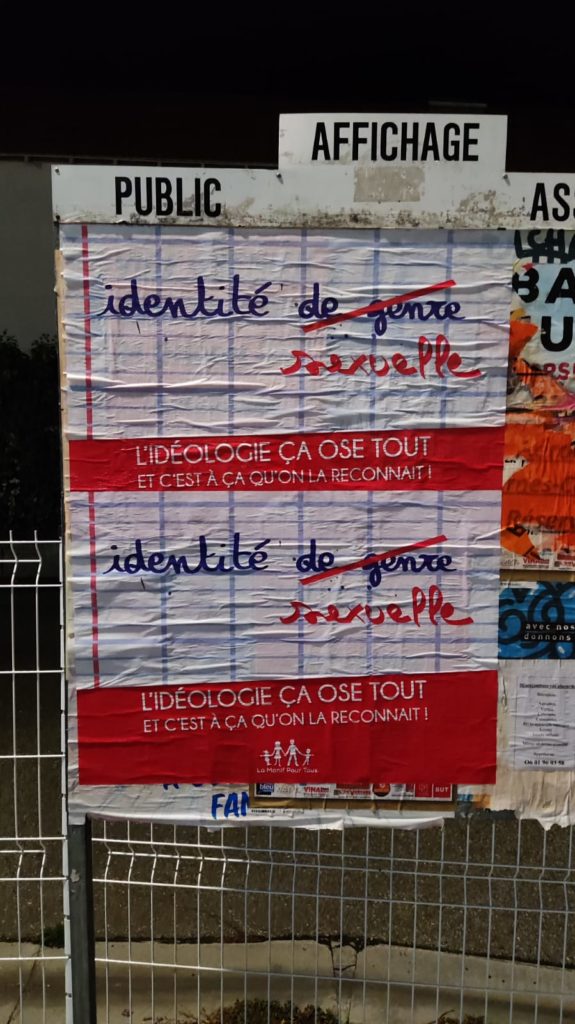 AFFICHAGE
PUBLIC
identité de genre
sexuelle
L'IDÉOLOGIE ÇA OSE TOUT
ET C'EST À ÇA QU'ON LA RECONNAIT !
identité de genre
sexuelle
L'IDÉOLOGIE ÇA OSE TOUT
ET C'EST À ÇA QU'ON LA RECONNAIT !
La Manif Pour Tous
FAM
bleu
avec nos
donnons